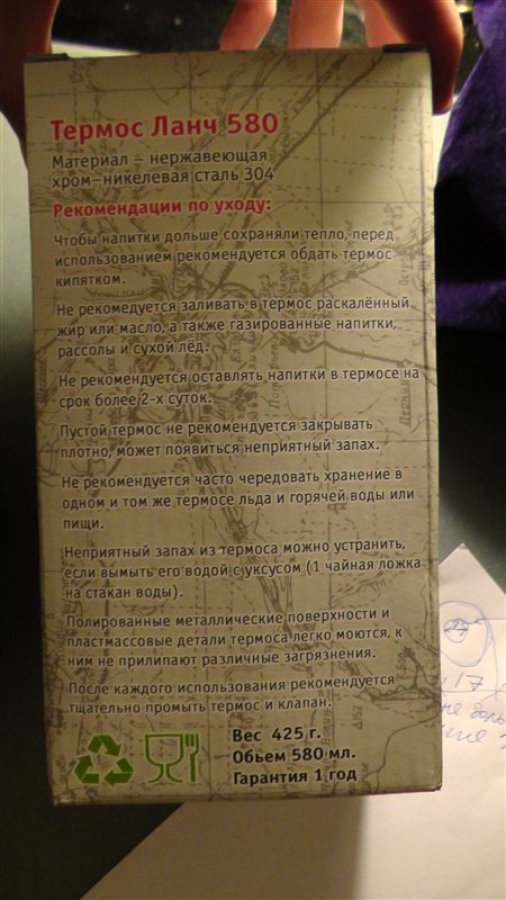 Термос Ланч 580
Материал – нержавеющая
хром–никелевая сталь 304
Рекомендации по уходу:
Чтобы напитки дольше сохраняли тепло, перед
использованием рекомендуется обдать термос
кипятком.
Не рекомедуется заливать в термос раскалённый
жир или масло, а также газированные напитки,
рассолы и сухой лёд.
Не рекомендуется оставлять напитки в термосе на
срок более 2-х суток.
Пустой термос не рекомендуется закрывать
плотно, может появиться неприятный запах.
Не рекомендуется часто чередовать хранение в
одном и том же термосе льда и горячей воды или
пищи.
Неприятный запах из термоса можно устранить,
если вымыть его водой с уксусом (1 чайная ложка
на стакан воды).
Полированные металлические поверхности и
пластмассовые детали термоса легко моются, к
ним не прилипают различные загрязнения.
После каждого использования рекомендуется
тщательно промыть термос и клапан.
Вес 425 г.
Обьем 580 мл.
Гарантия 1 год
17
не